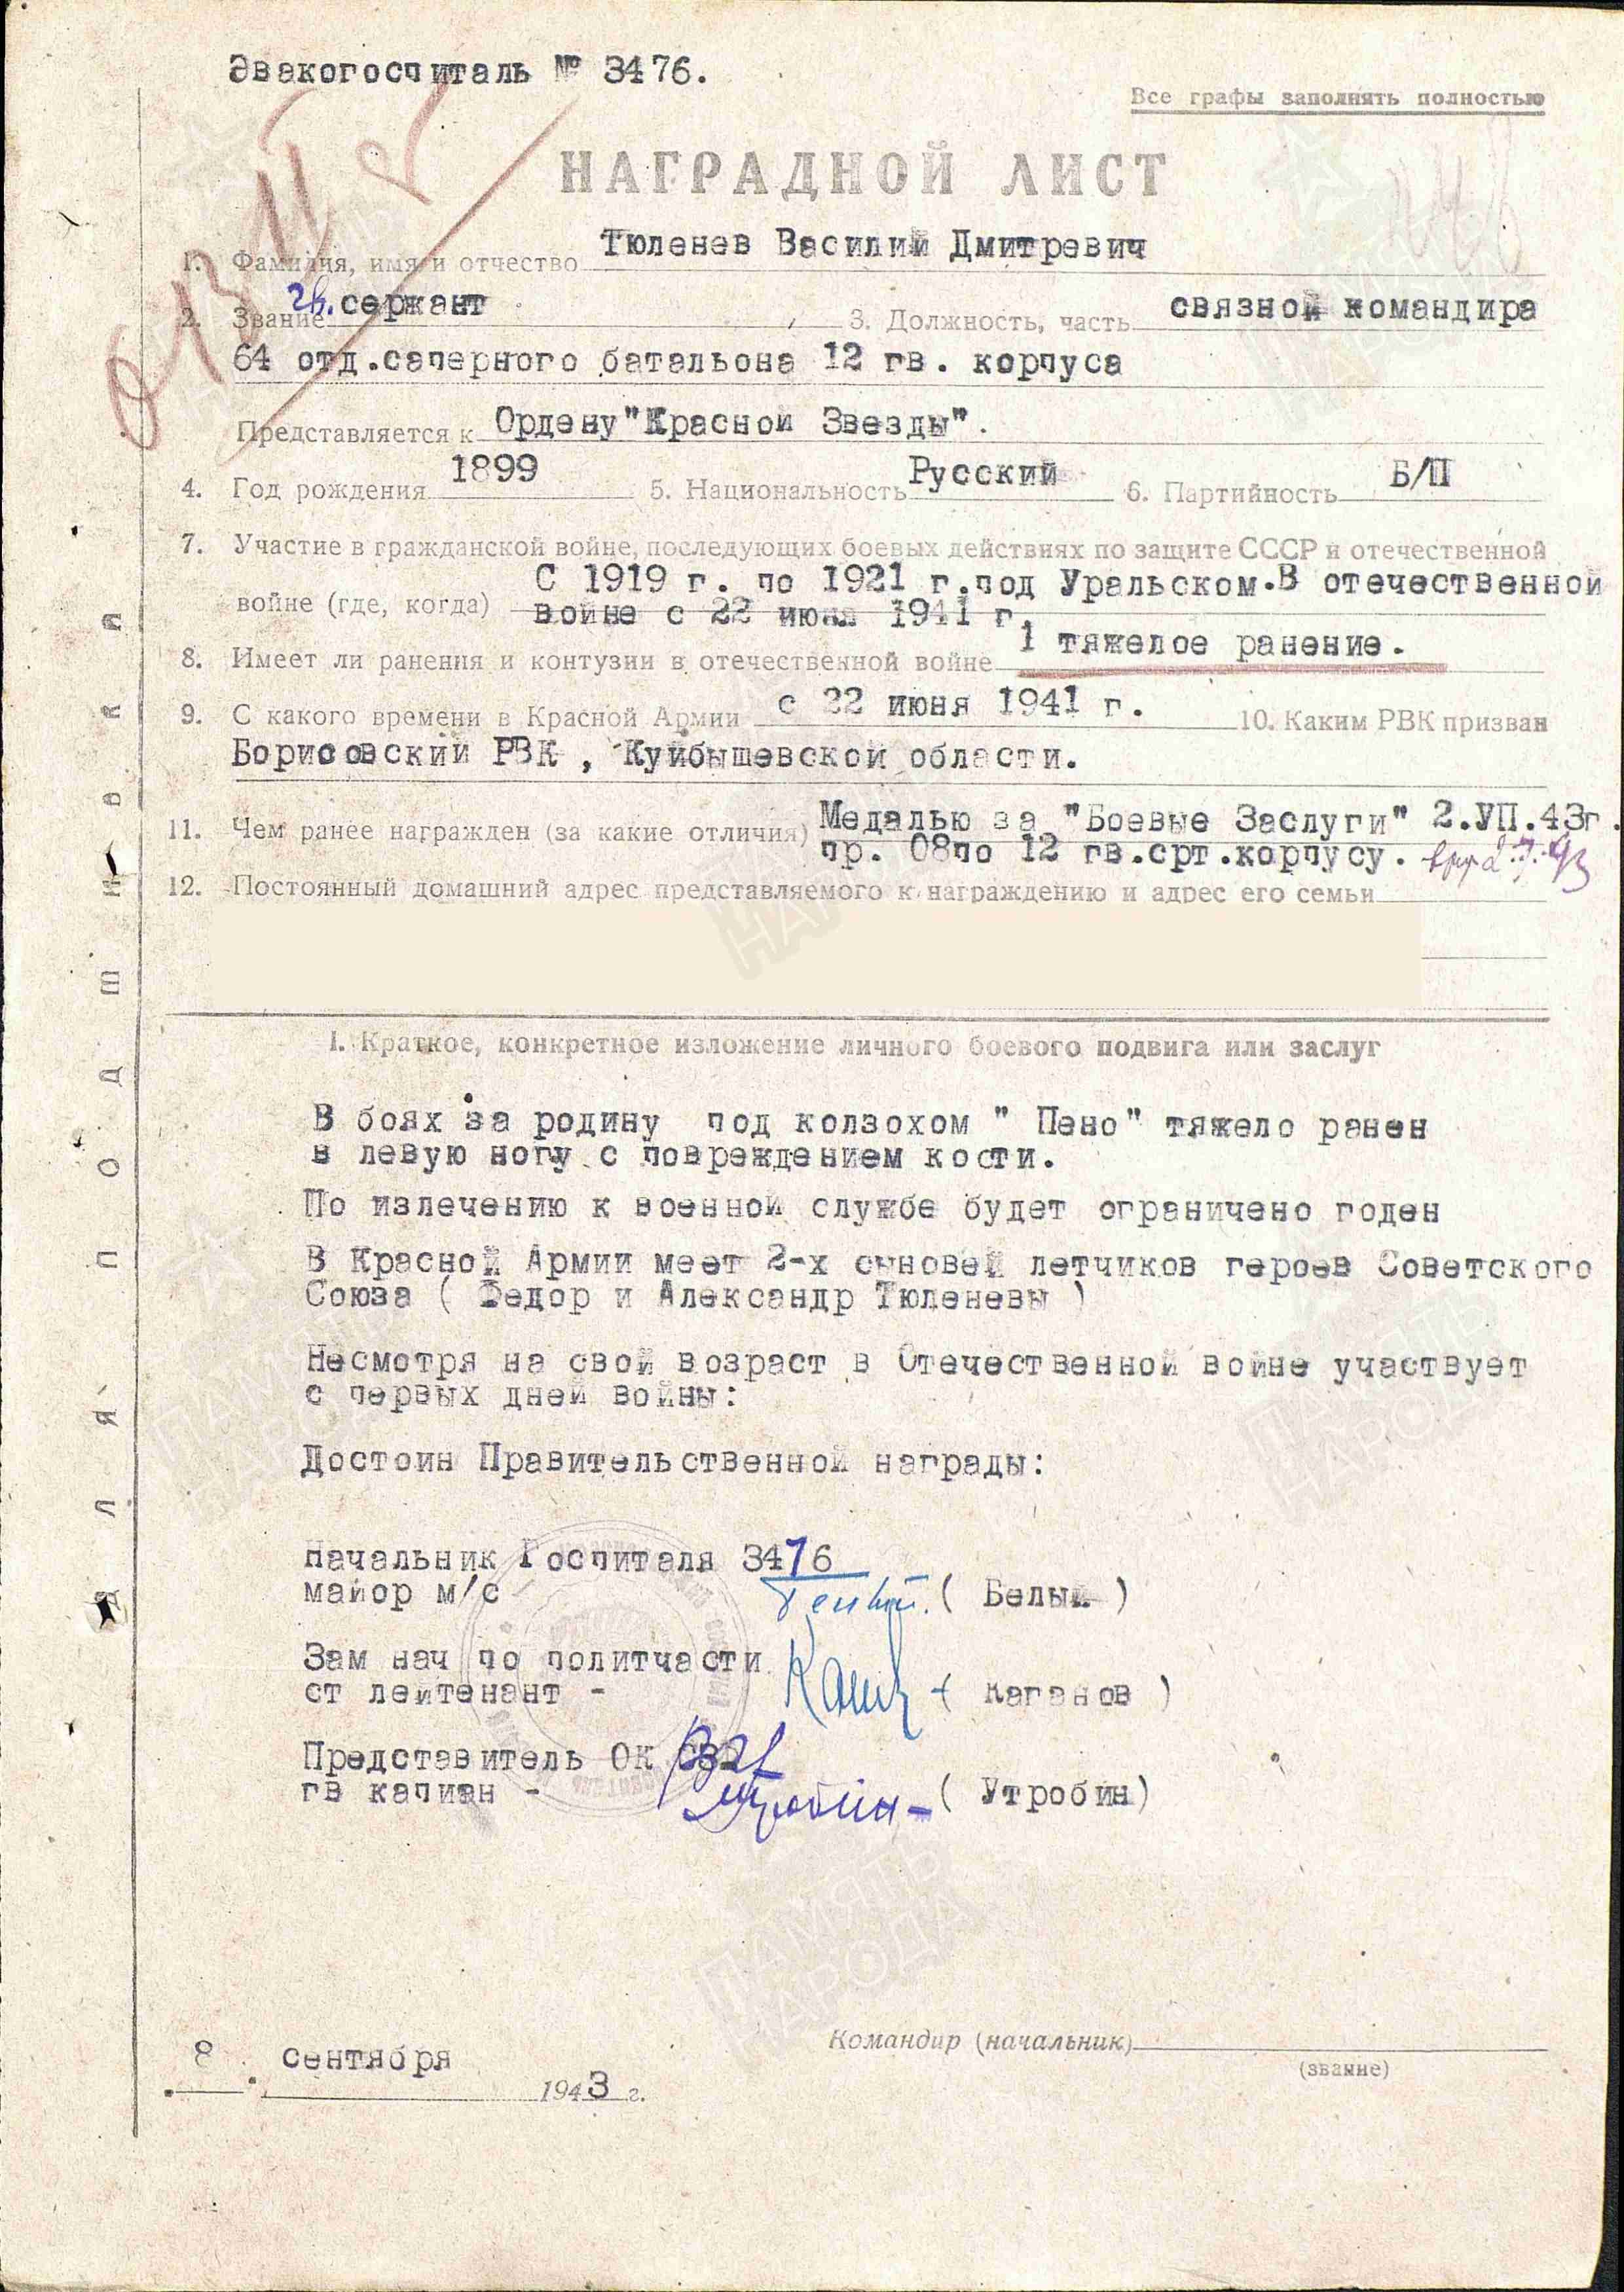 Эвакогоспиталь № 3476.
Все графы заполнять полностью
НАГРАДНОЙ ЛИСТ
1. Фамилия, имя и отчество Тюленев Василий Дмитревич
2. Звание гв. сержант 3. Должность, часть связной командира
64 отд.саперного батальона 12 гв. корпуса
Представляется к Ордену "Красной Звезды".
4. Год рождения 1899 5. Национальность Русский 6. Партийность Б/П
7. Участие в гражданской войне, последующих боевых действиях по защите СССР и отечественной
войне (где, когда) С 1919 г. по 1921 г.под Уральском.В отечественной
войне с 22 июня 1941 г.
8. Имеет ли ранения и контузии в отечественной войне 1 тяжелое ранение.
9. С какого времени в Красной Армии с 22 июня 1941 г. 10. Каким РВК призван
Борисовский РВК, Куйбышевской области.
11. Чем ранее награжден (за какие отличия) Медалью за "Боевые Заслуги" 2.УП.43г.
пр. 08по 12 гв.срт.корпусу.
12. Постоянный домашний адрес представляемого к награждению и адрес его семьи
I. Краткое, конкретное изложение личного боевого подвига или заслуг
В боях за родину под колзохом " Пено" тяжело ранен
в левую ногу с повреждением кости.
По излечению к военной службе будет ограничено годен
В Красной Армии меет 2-х сыновей летчиков героев Советского
Союза ( Федор и Александр Тюленевы )
Несмотря на свой возраст в Отечественной войне участвует
с первых дней войны:
Достоин Правительственной награды:
Начальник Госпиталя 3476
майор м/с ( Белый )
Зам нач по политчасти
ст лейтенант - ( Каганов )
Представитель ОК
гв капиан - ( Утробин)
8 сентября 1943 г.
Командир (начальник)
(звание)
Для подшивки
ПАМЯТЬ НАРОДА